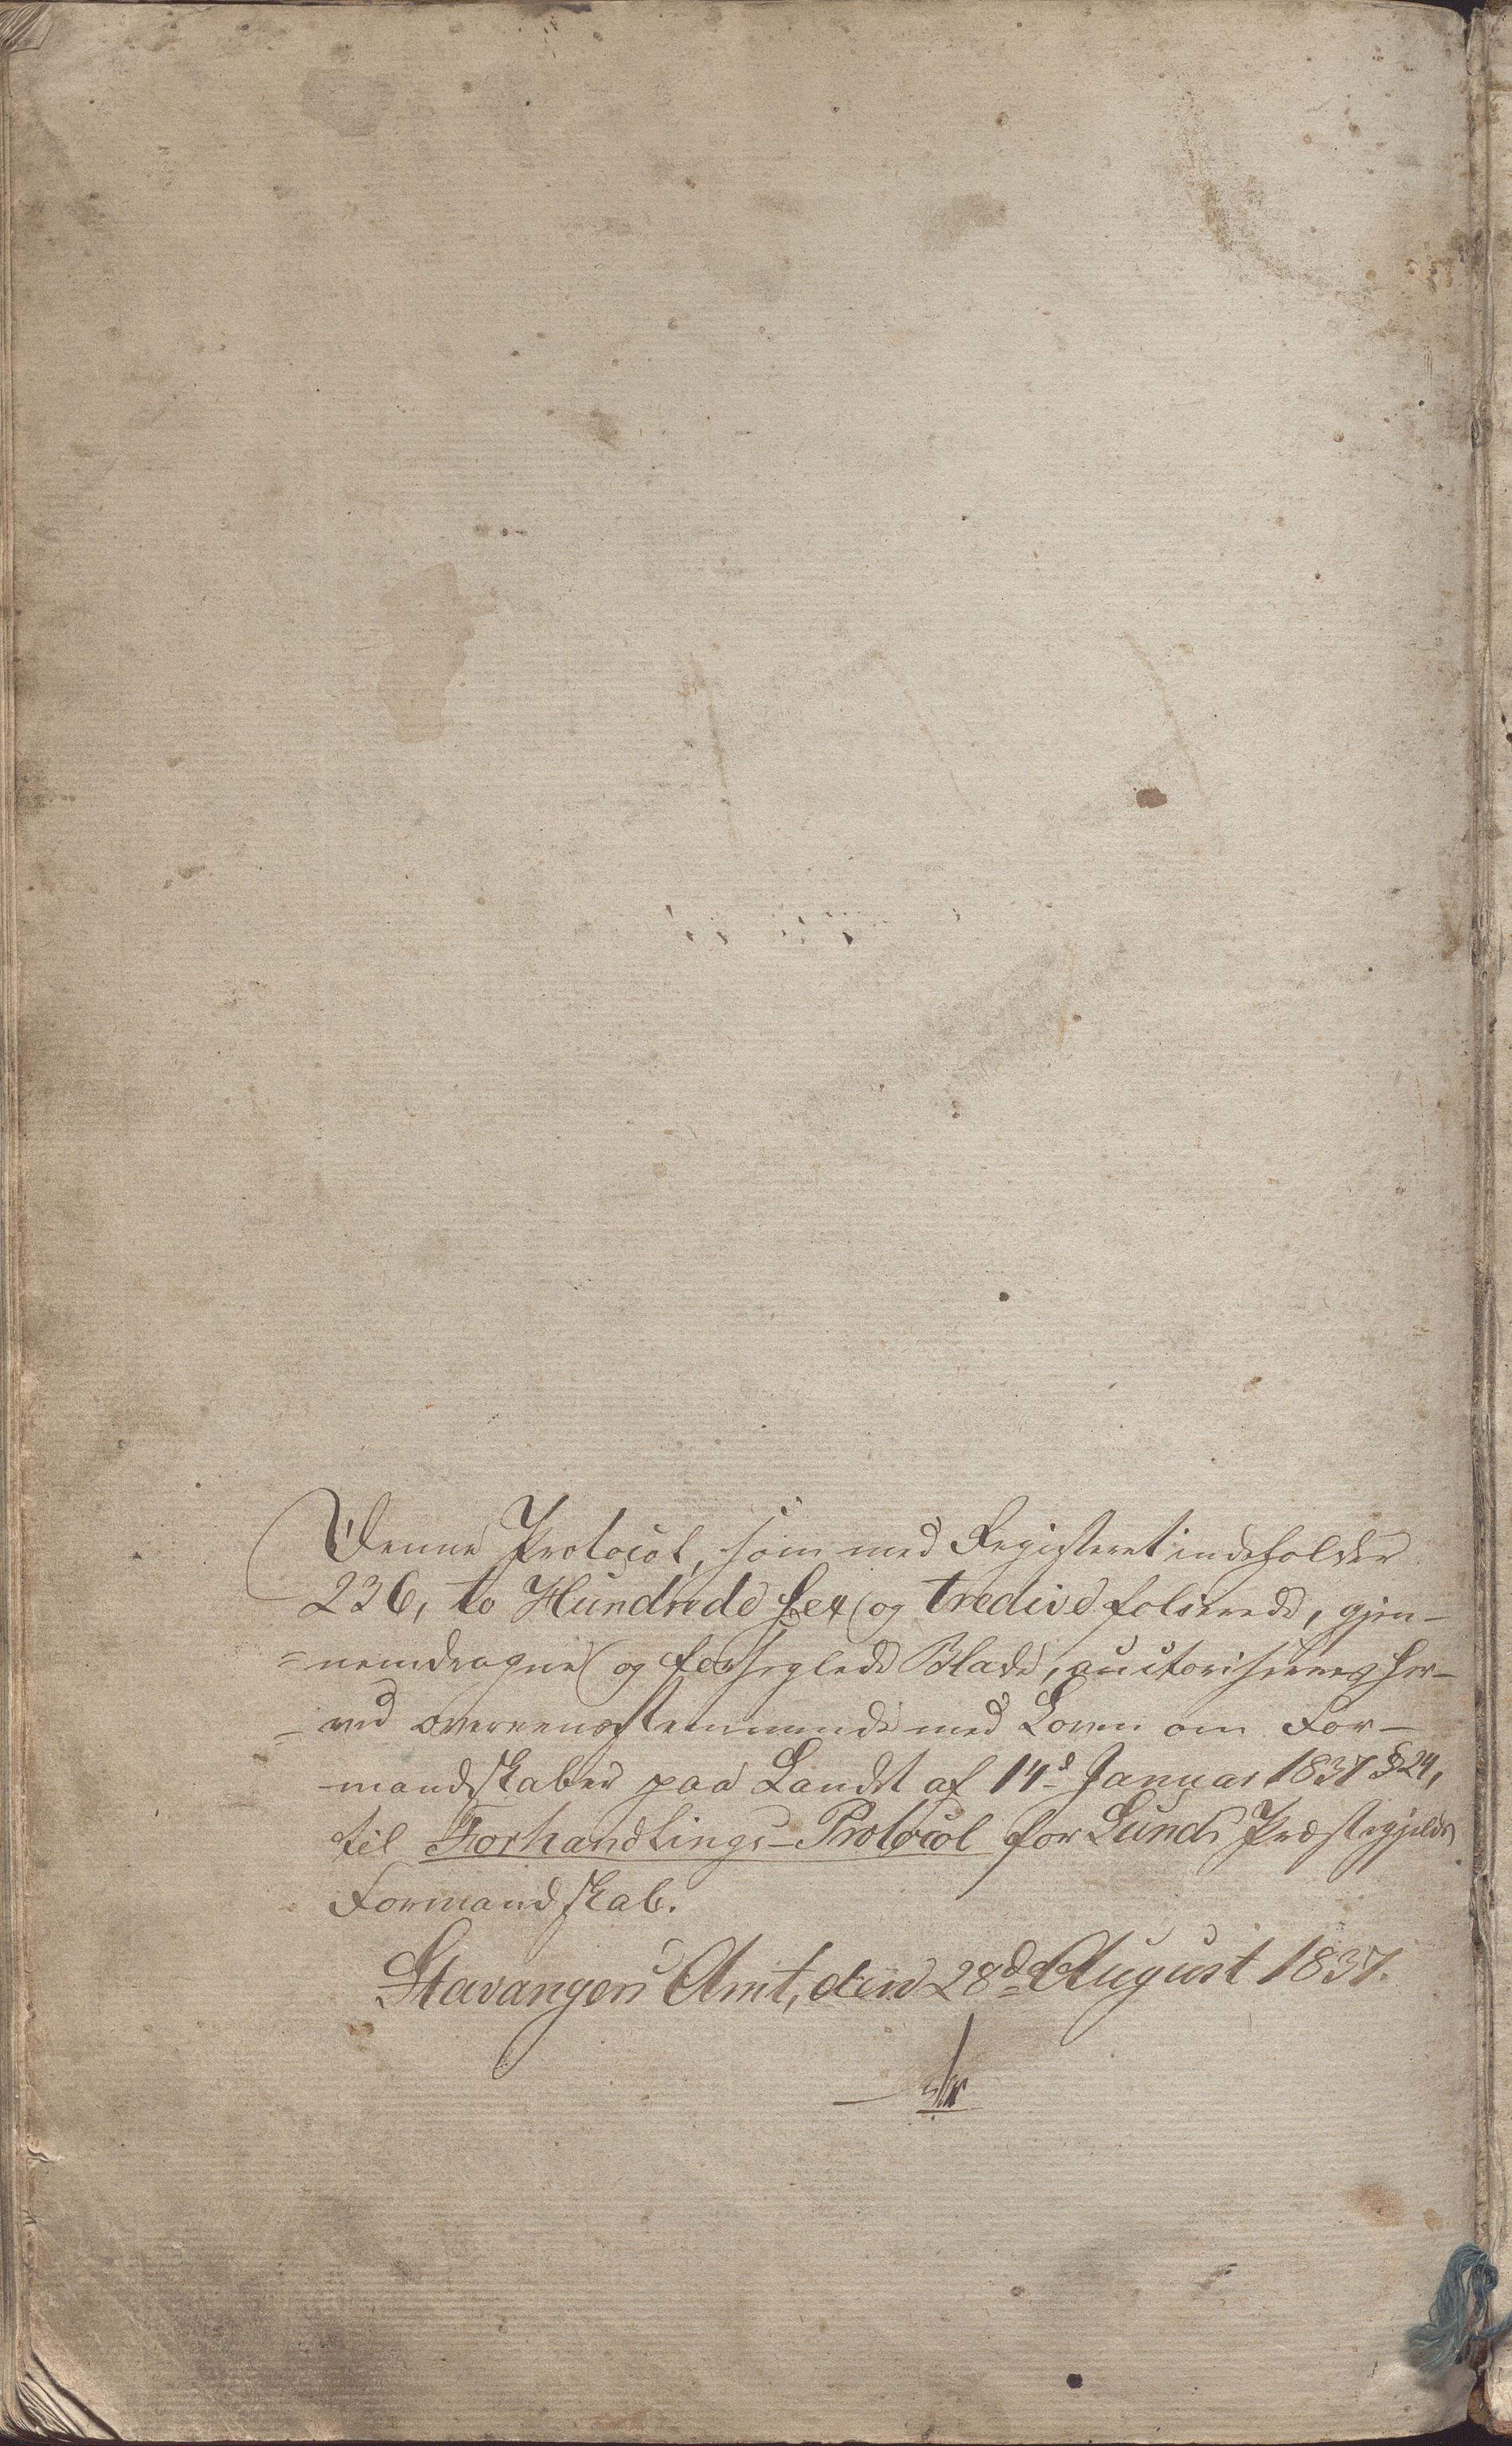 Denne Protocol, som med Registeret indeholder
236, to Hundrede sex og tredive folierede, gjen-
=nemdragne og forseglede Blade, auctoriseres her-
=ved overeensstemmende med Loven om For-
mandskaber paa Landet af 14d Januar 1837 § 24,
til Forhandlings-Protocol for Lunds Præstegjelds
Formandskab.
Stavangers Amt, den 28d August 1837.